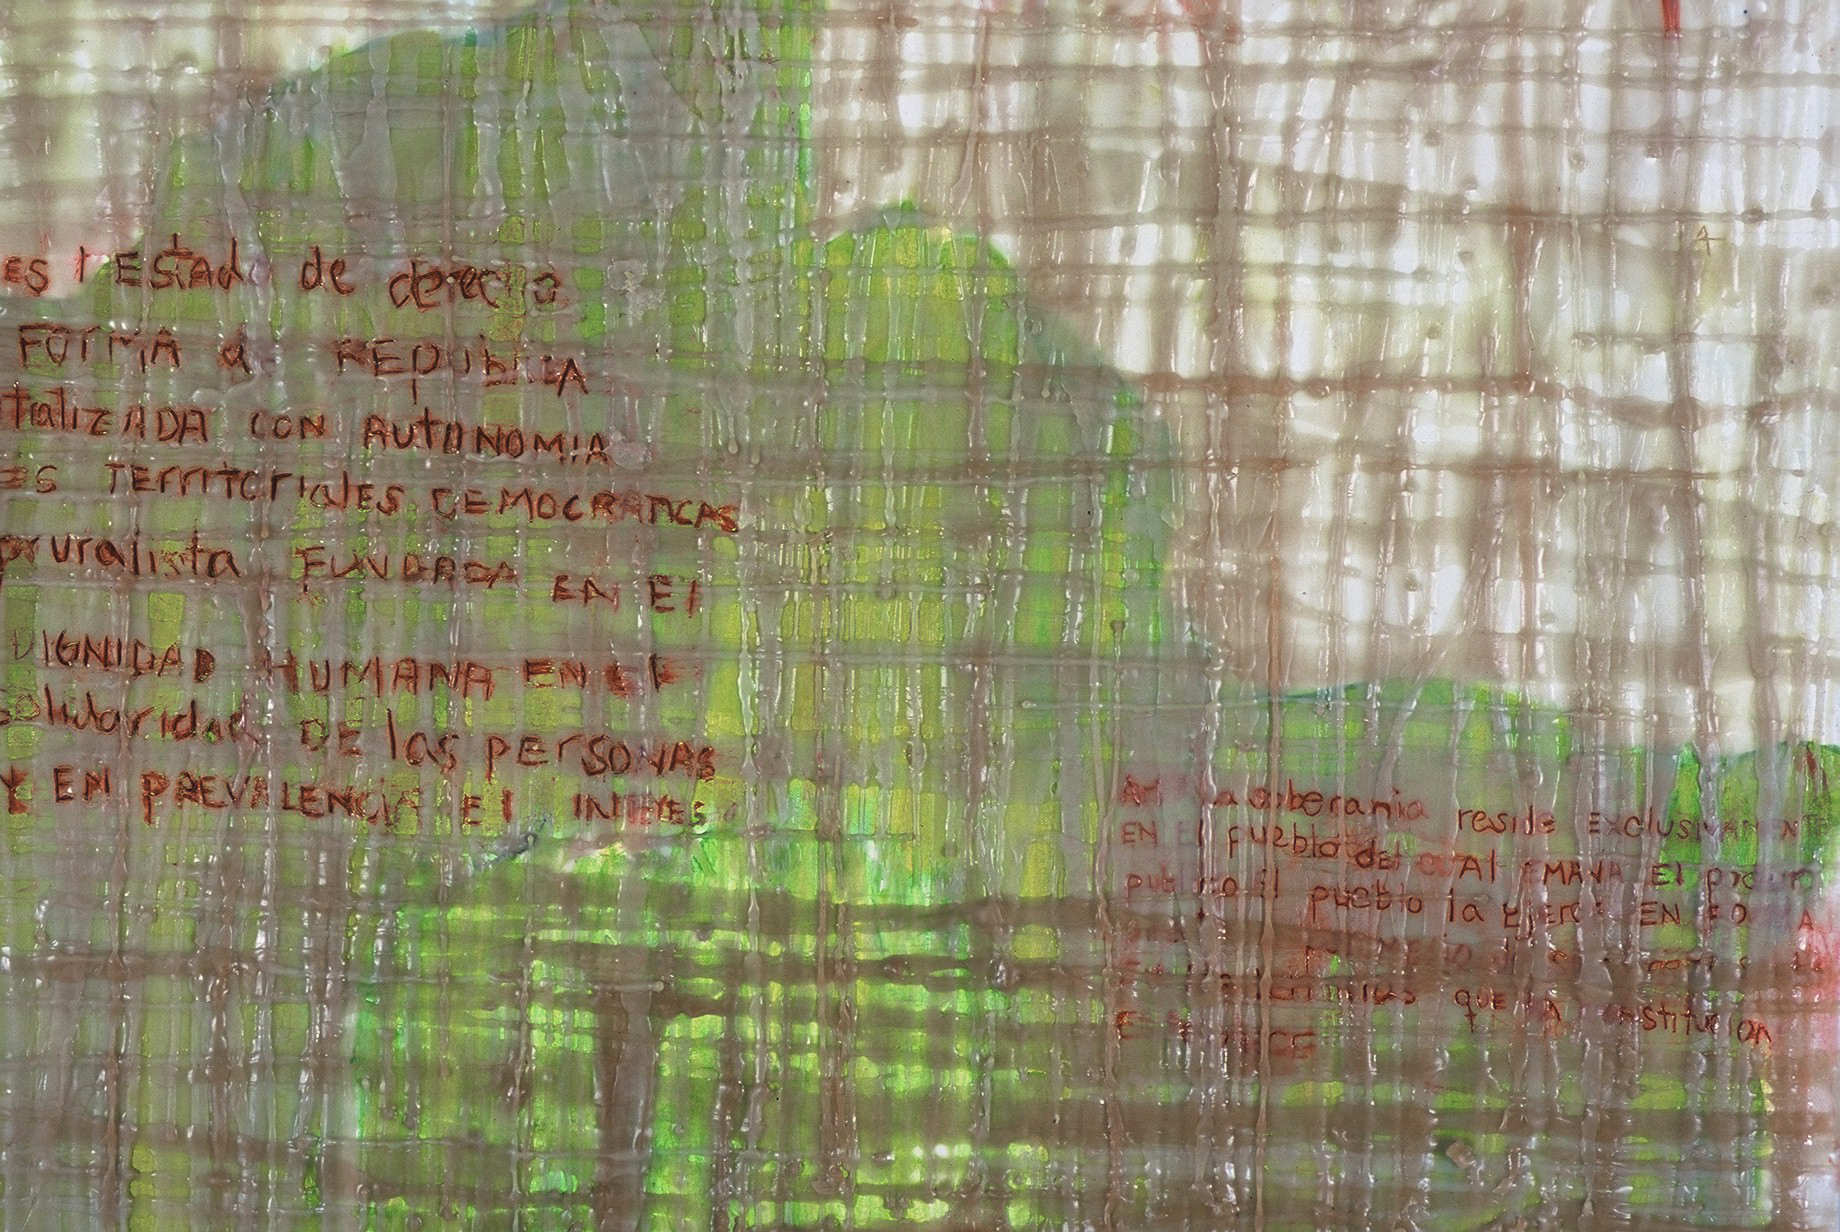 ES 1 EStAdo de derecho
FOrMA d REpUbLicA
tralizADA CON AUtONOMIA
ES TErritoriales DEMOCRATICAS
pruralista FUNDADA EN El
DIGNIDAD HUMANA EN El
Solidaridad DE las pERSONAS
Y EN PREVALENCIA El INtERES
la soberania reside EXclusiVAMENTE
EN El pueblo del cuAl EMANA El poder
publico El pueblo la EjERCE EN FORMA
que la constitucion